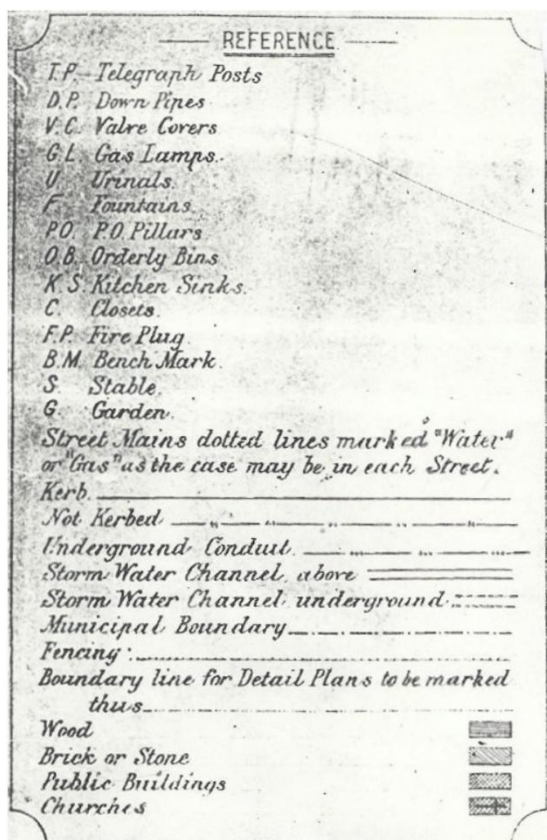 REFERENCE
T.P. Telegraph Posts
D.P. Down Pipes
V.C. Valve Covers
G.L. Gas Lamps.
U. Urinals.
F. Fountains.
P.O. P.O. Pillars
O.B. Orderly Bins
K.S. Kitchen Sinks.
C. Closets.
F.P. Fire Plug.
B.M. Bench Mark.
S. Stable.
G. Garden.
Street Mains dotted lines marked "Water"
or "Gas" as the case may be in each Street.
Kerb.
Not Kerbed
Underground Conduit.
Storm Water Channel, above
Storm Water Channel, underground
Municipal Boundary
Fencing
Boundary line for Detail Plans to be marked
thus
Wood
Brick or Stone
Public Buildings
Churches